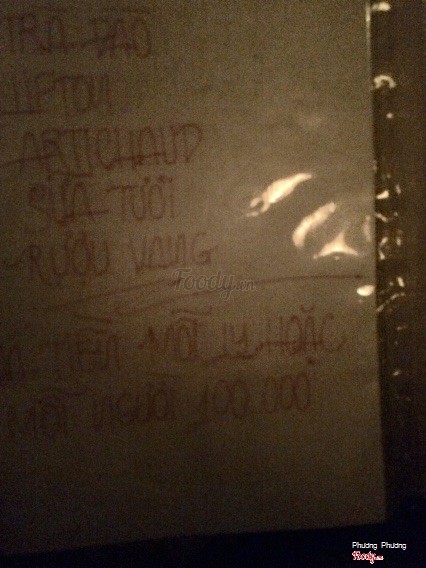 TRÀ ĐÀO
LIPTON
ARTICHAUD
SỮA TƯƠI
RƯỢU VANG
Foody.vn
TIỀN MỖI LY HOẶC
MỘT NGƯỜI 100.000
Phương Phương
Foody.vn